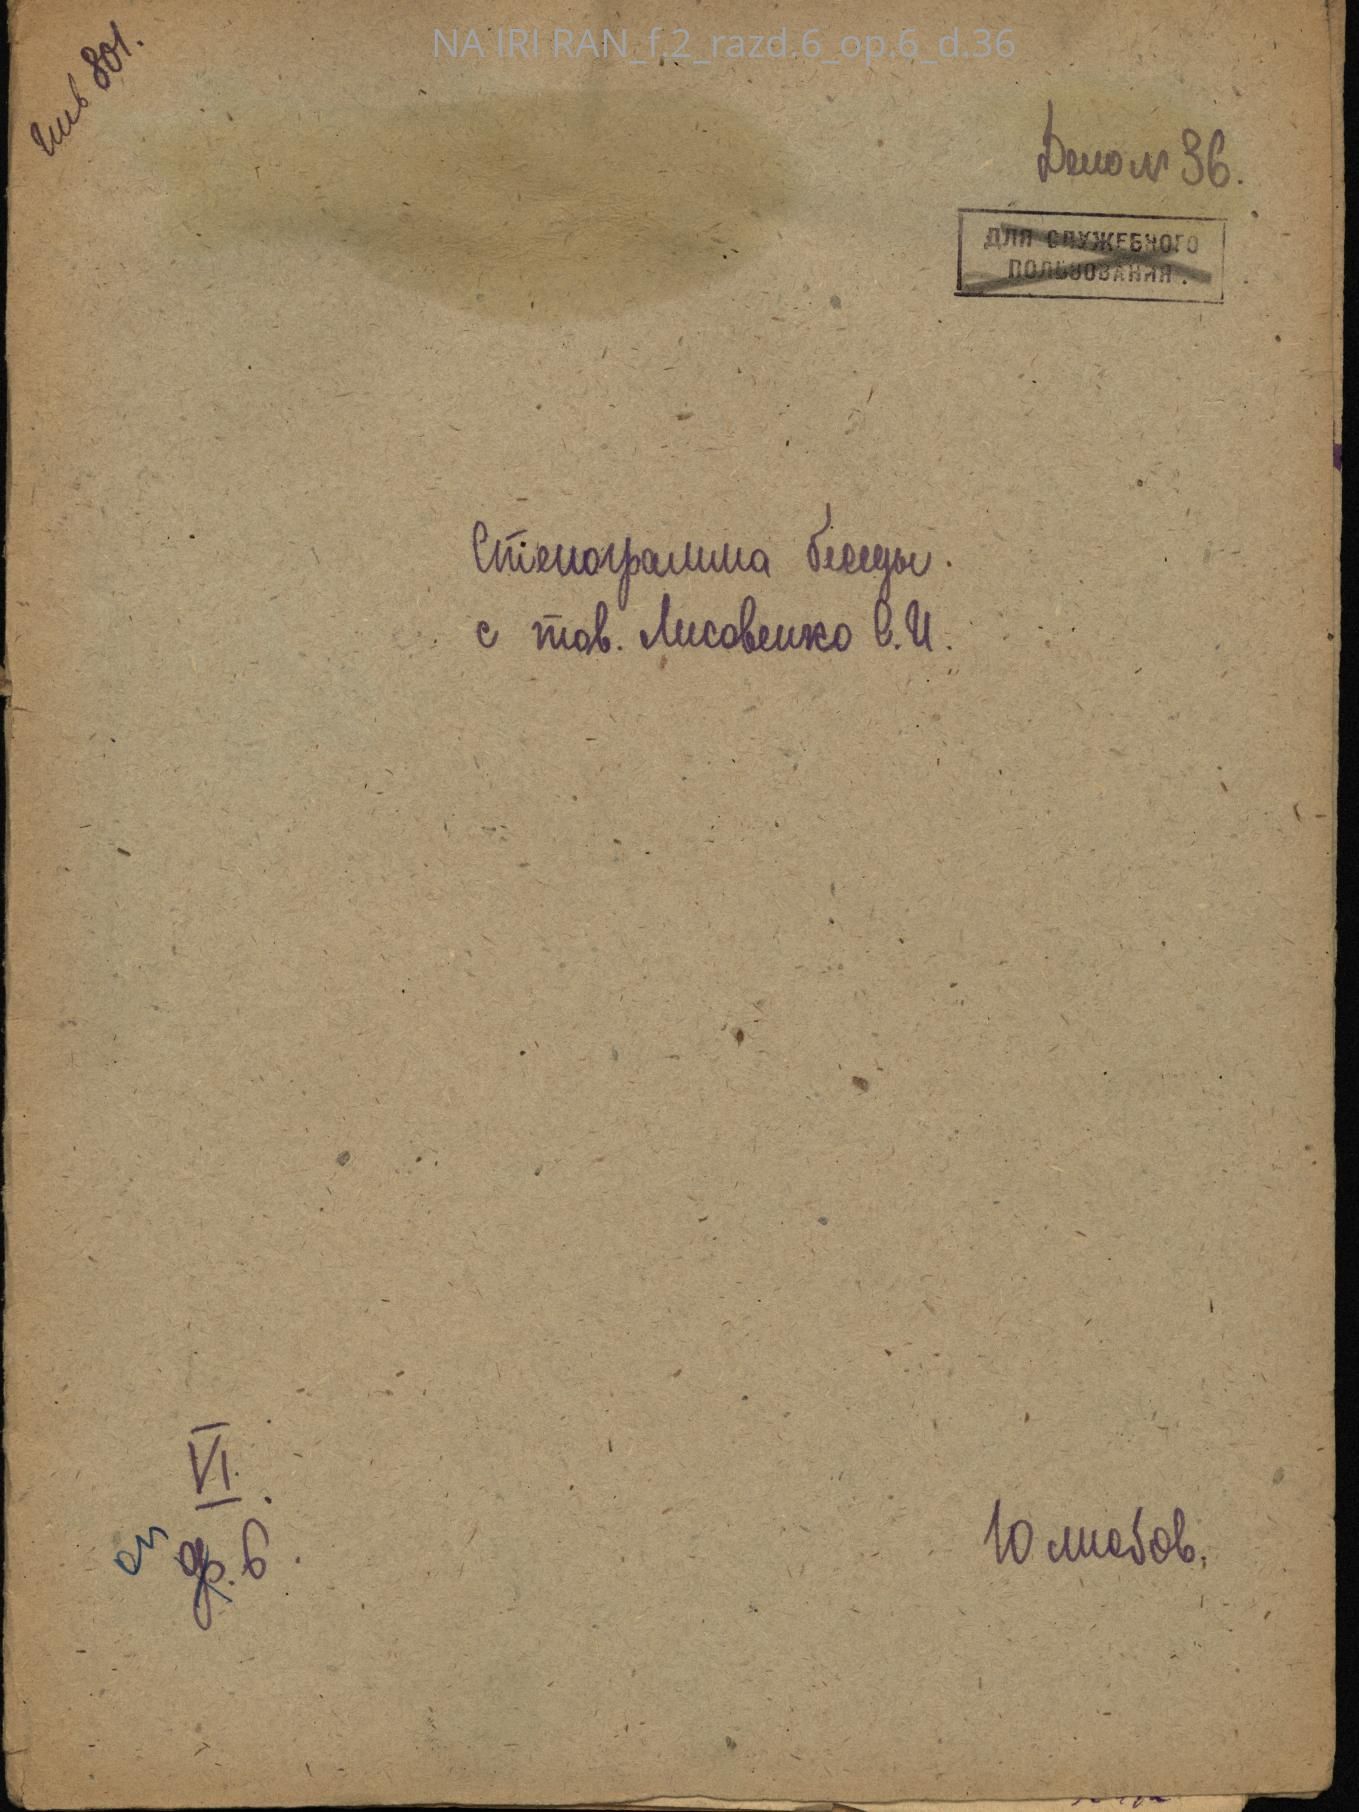 NA IRI RAN_f.2_razd.6_op.6_d.36
инв 801.
Дело № 36.
ДЛЯ СЛУЖЕБНОГО
ПОЛЬЗОВАНИЯ.
Стенограмма беседы.
с тов. Лисовенко С.И.
VI.
оп
ф. 6.
10 листов.